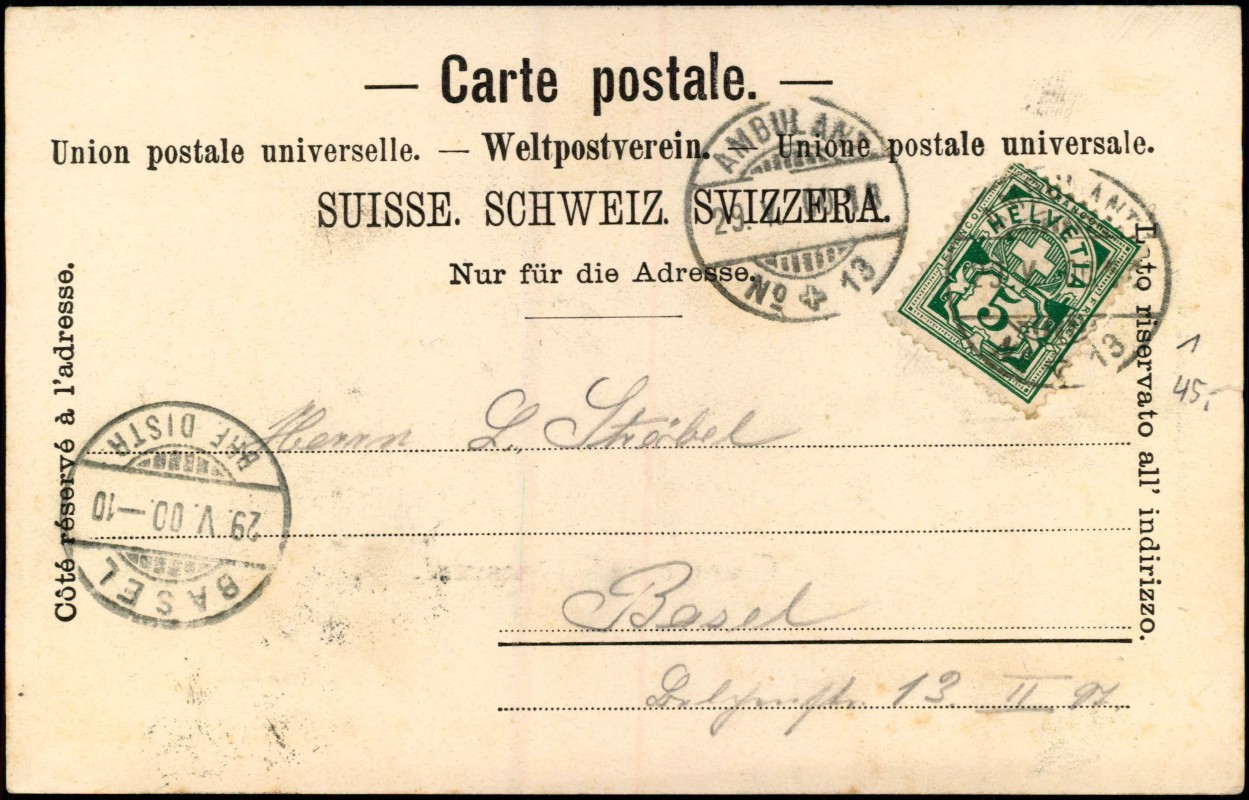 — Carte postale. —
Union postale universelle. — Weltpostverein. — Unione postale universale.
SUISSE. SCHWEIZ. SVIZZERA.
Nur für die Adresse.
Côté réservé à l'adresse.
Lato riservato all' indirizzo.
AMBULANT
29. V. 00
No 13
AMBULANT
13
HELVETIA
FRANCO
5
1
45.-
BRF. DISTR.
29. V. 00.—10
BASEL
Herrn L. Ströbel
Basel
13 II